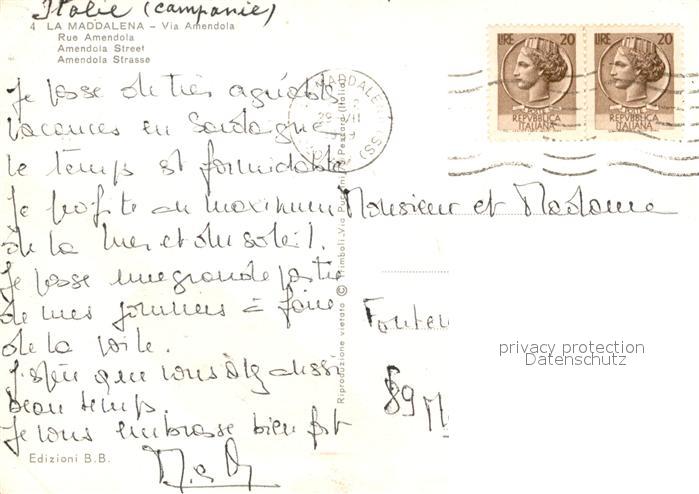 Italie (Campanie)
4 LA MADDALENA – Via Amendola
Rue Amendola
Amendola Street
Amendola Strasse
Je passe de très agréables
vacances en Sardaigne
le temps est formidable
Je profite au maximum
de la mer et du soleil.
Je passe une grande partie
de mes journées à faire
de la voile.
J'espère que vous avez aussi
beau temps.
Je vous embrasse bien fort
Edizioni B.B.
Riproduzione vietata © Trimboli - Via Puccini Pescara (Italia)
MADDALENA (SS)
LIRE 20
REPVBBLICA
ITALIANA
LIRE 20
REPVBBLICA
ITALIANA
Monsieur et Madame
Fonten
89
privacy protection
Datenschutz